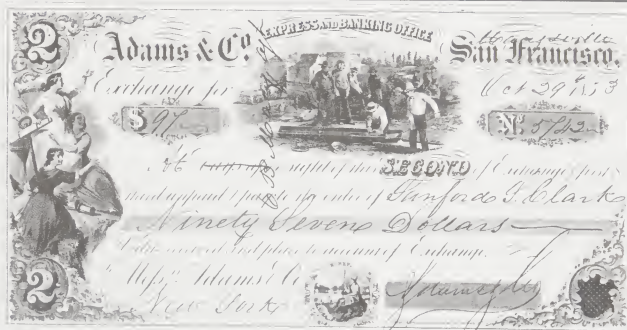 2
Adams & Co.
EXPRESS AND BANKING OFFICE
Marysville
San Francisco,
Exchange for
Oct 29th 1853
$97
No. 5742
At sight of this SECOND of Exchange first
and third unpaid pay to order of Stanford T. Clark
Ninety Sevene Dollars
Value received and place to account of Exchange.
Messrs. Adams & Co
Adams & Co
New York
2